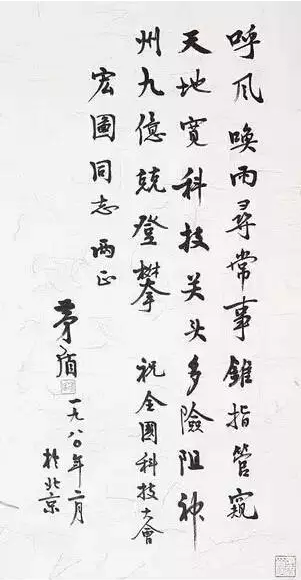 呼风唤雨寻常事錐指管窥
天地宽科技关头多險阻神
州九億競登攀 祝全國科技大會
宏圖同志 兩正
茅盾
一九八〇年二月
於北京